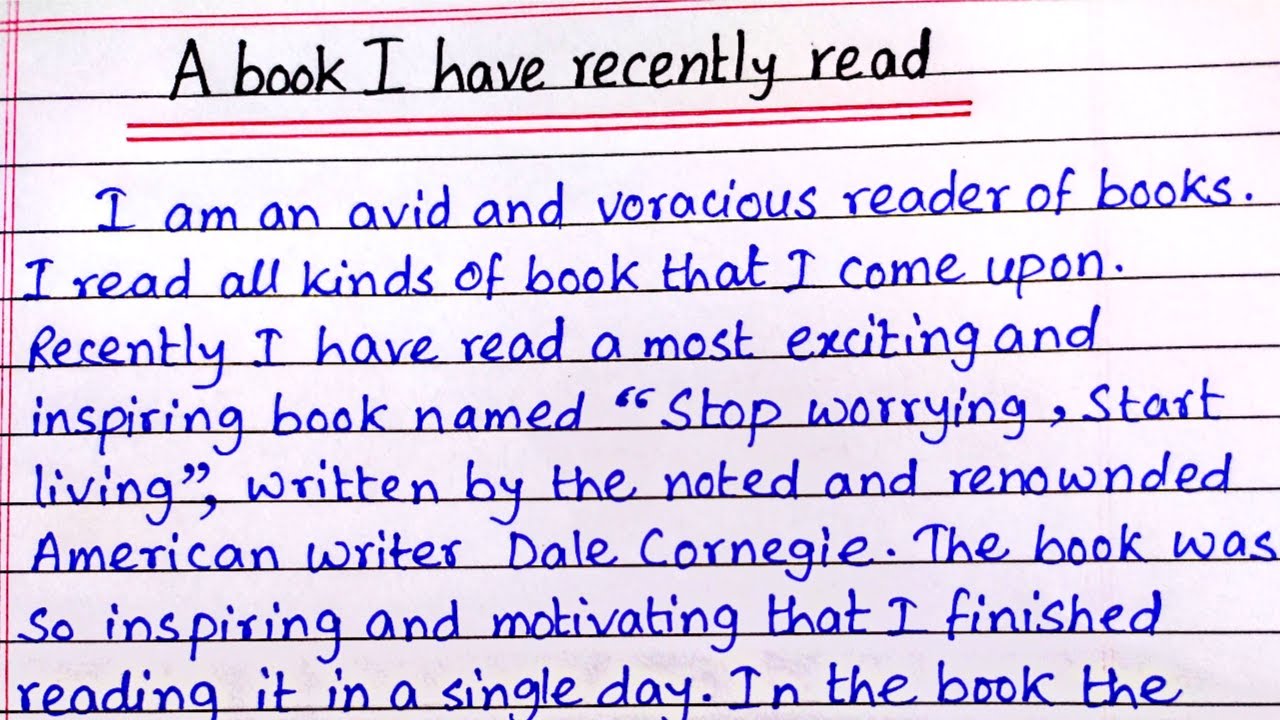 A book I have recently read
I am an avid and voracious reader of books.
I read all kinds of book that I come upon.
Recently I have read a most exciting and
inspiring book named “Stop worrying, Start
living”, written by the noted and renownded
American writer Dale Cornegie. The book was
so inspiring and motivating that I finished
reading it in a single day. In the book the